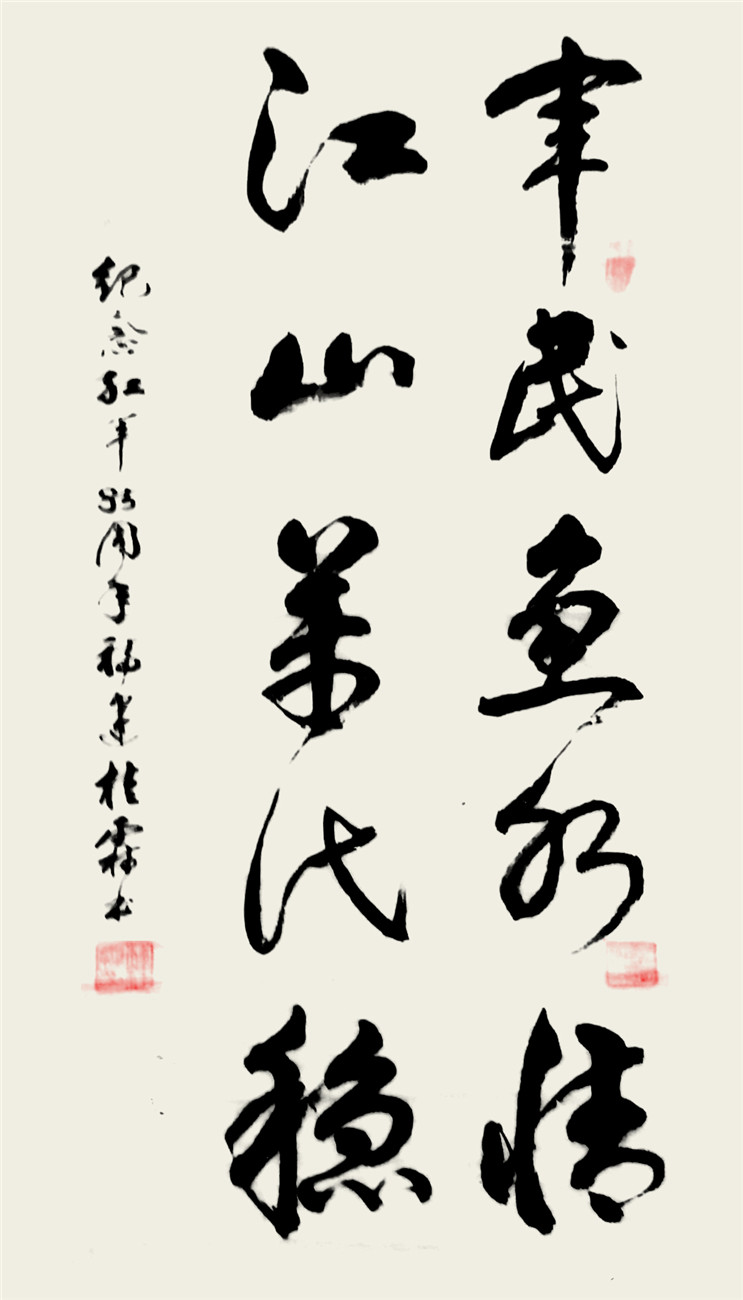 军民鱼水情
江山万代稳
纪念红军85周年福建桂霖书